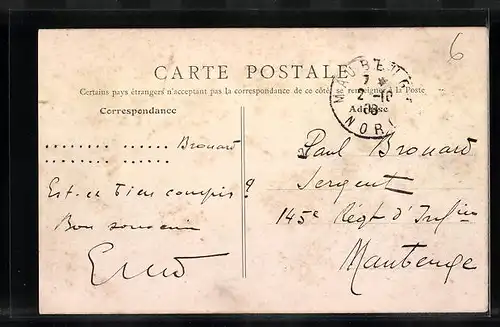 6
CARTE POSTALE
Certains pays étrangers n'acceptant pas la correspondance de ce côté, se renseigner à la Poste
Correspondance
Adresse
MAUBEUGE
7
2 -10
08
NORD
.......... .......... Brouard
.......... ..........
Est-ce bien compris ?
Bon souvenir
Paul Brouard
Sergent
145e Régt d'Infie
Maubeuge